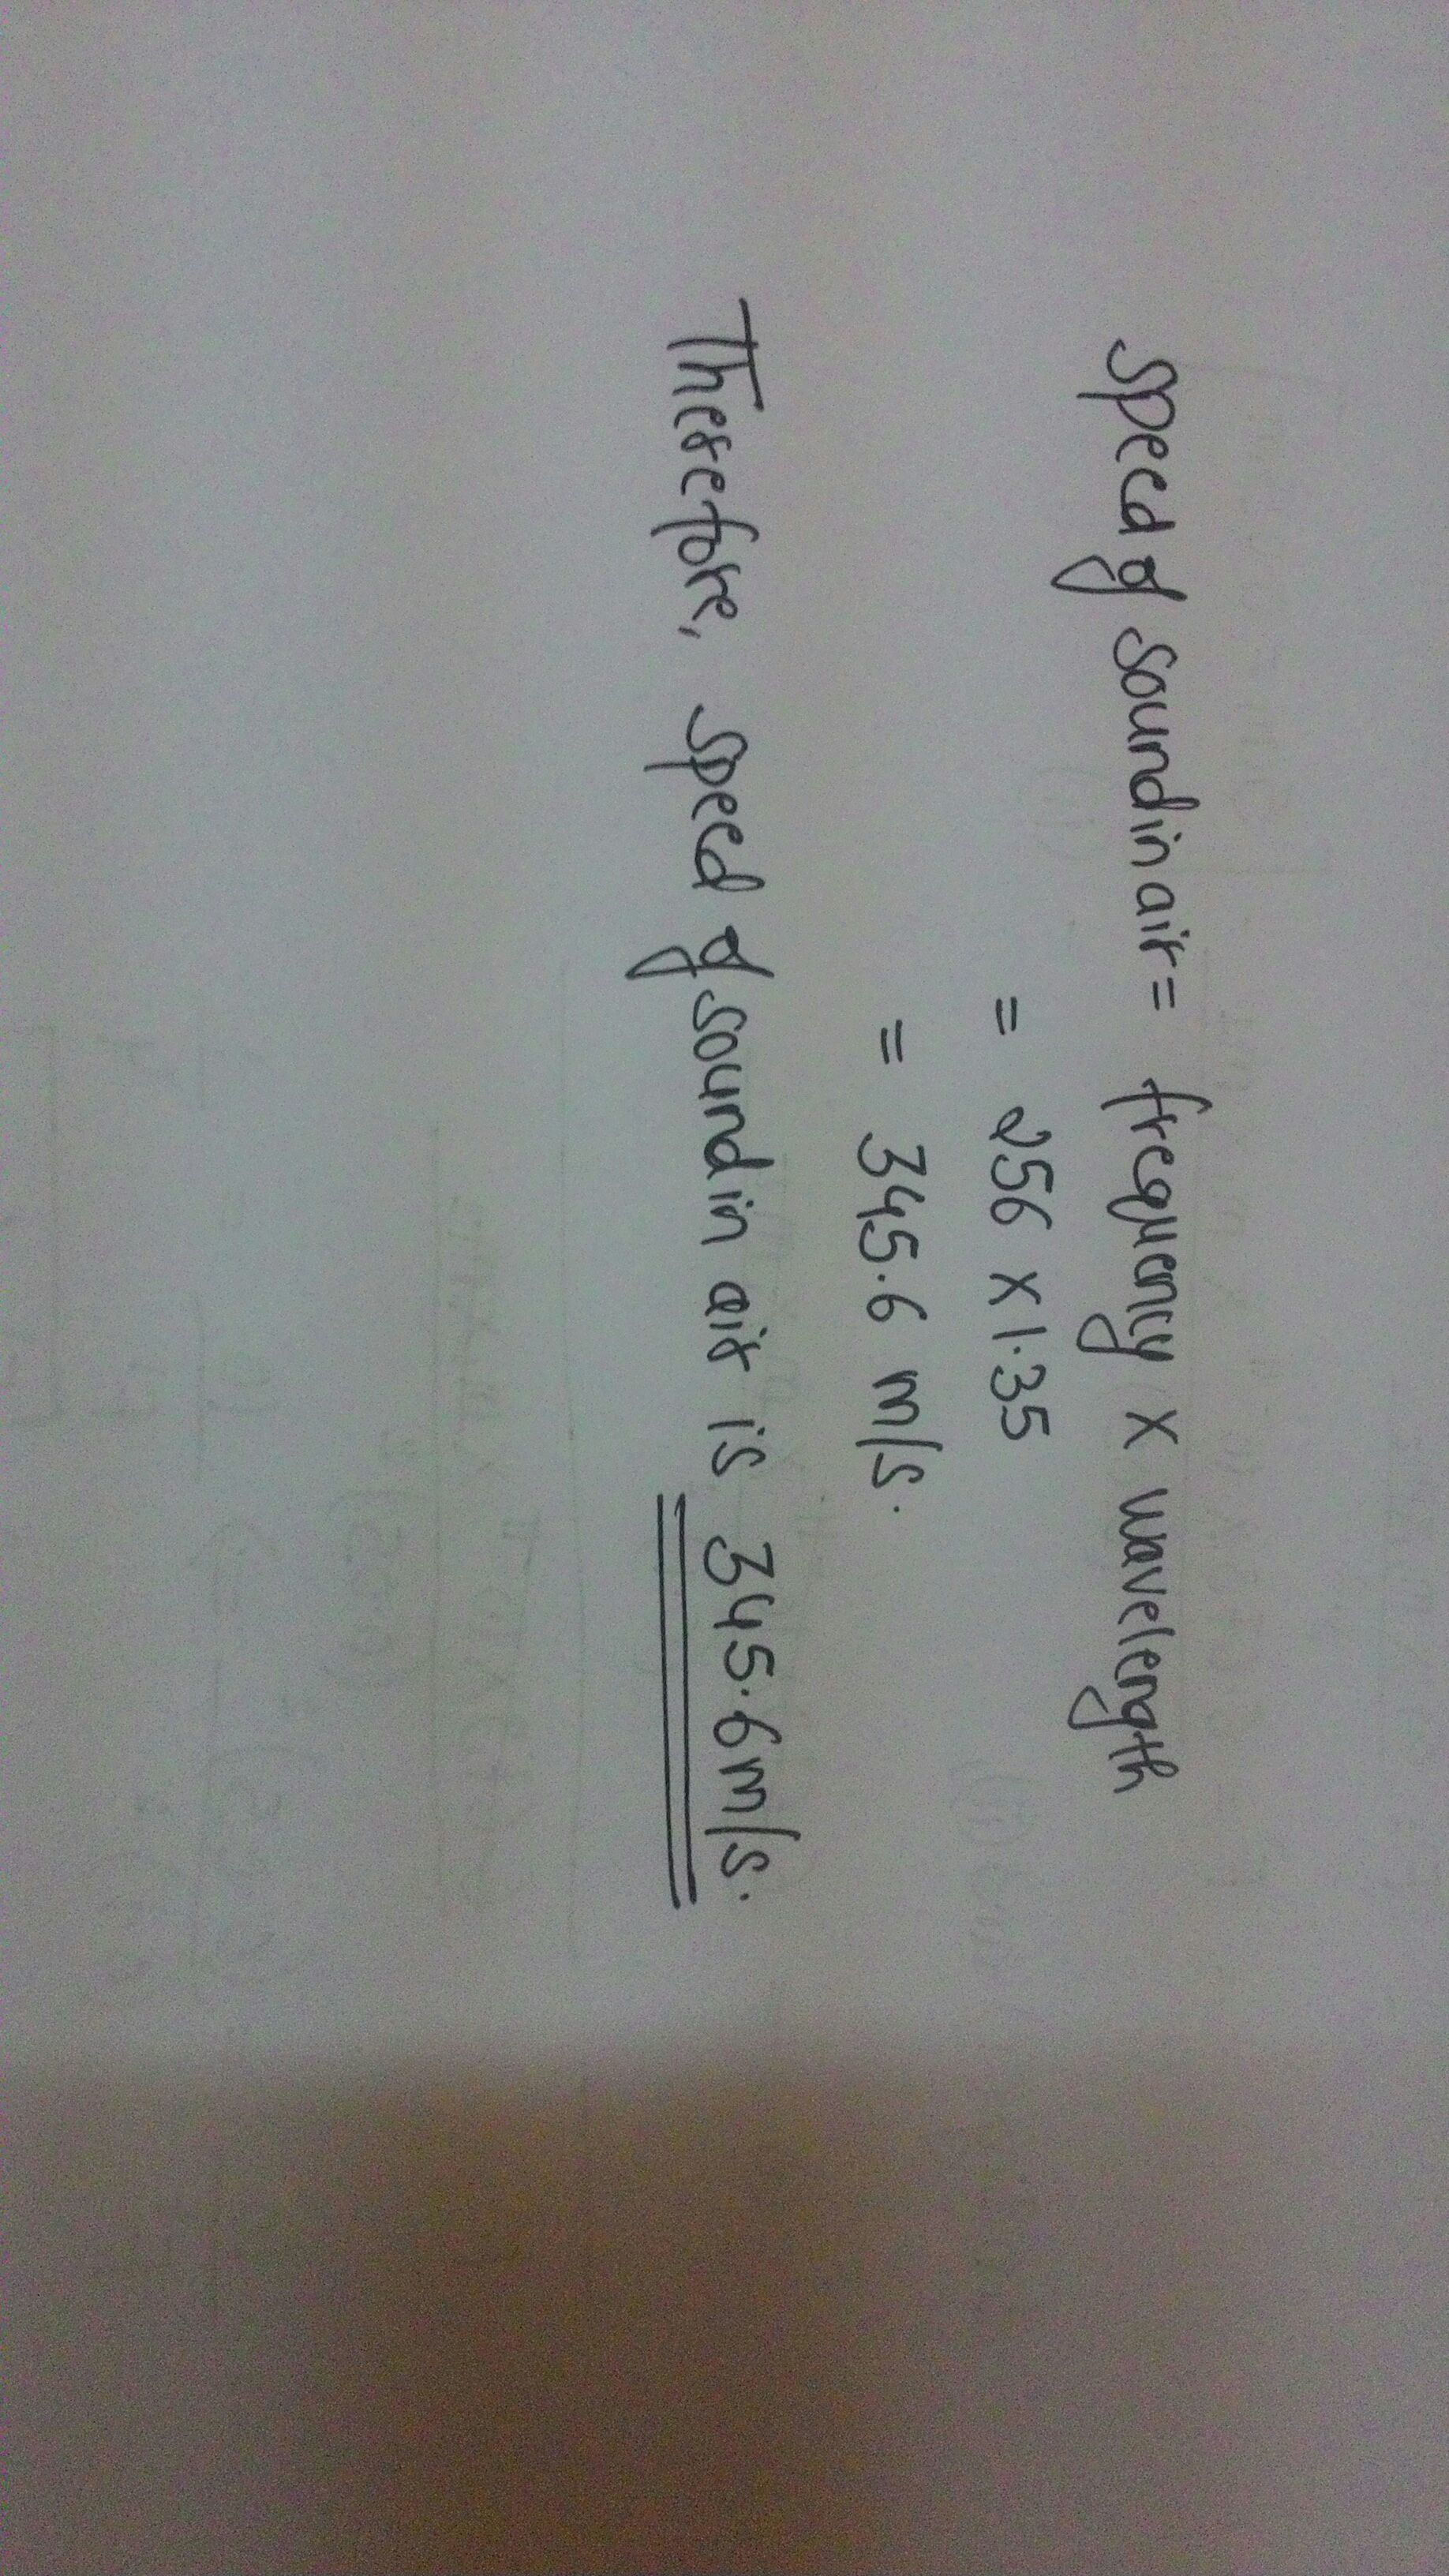 Speed of sound in air = frequency x wavelength
= 256 x 1.35
= 345.6 m/s.
Therefore, speed of sound in air is 345.6m/s.